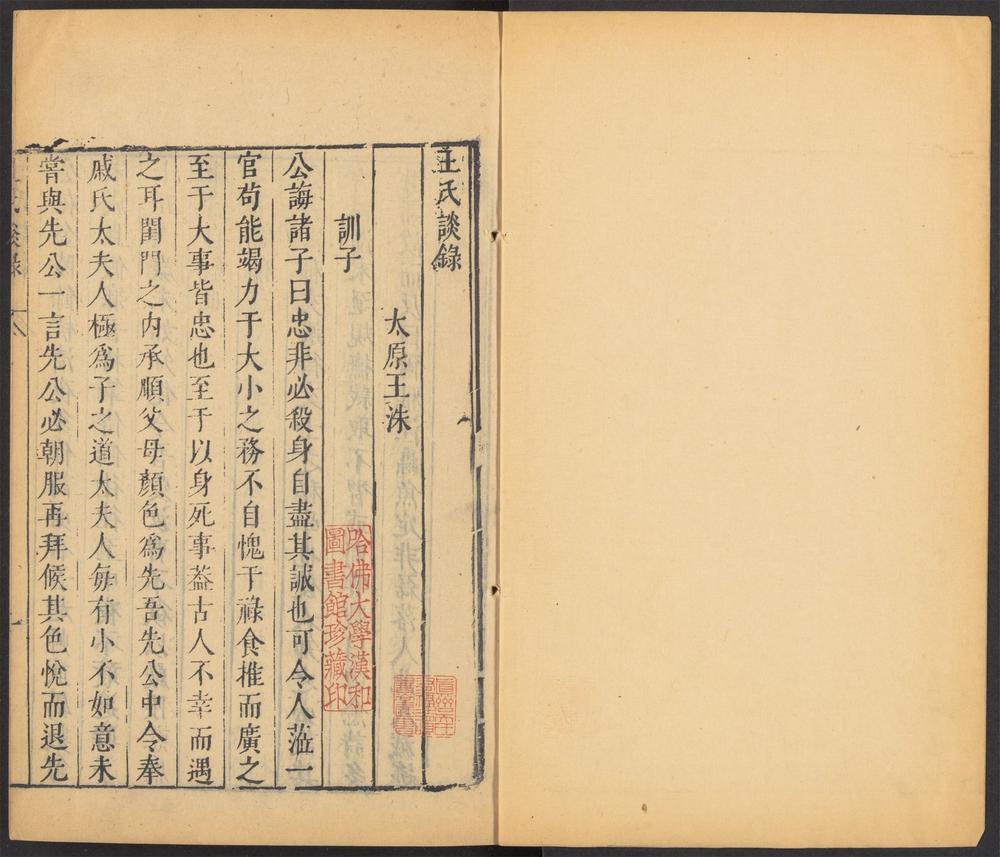 王氏談錄
太原王洙
訓子
公誨諸子曰忠非必殺身自盡其誠也可令人蒞一
官苟能竭力于大小之務不自愧于祿食推而廣之
至于大事皆忠也至于以身死事葢古人不幸而遇
之耳閨門之内承順父母顏色爲先吾先公中令奉
戚氏太夫人極爲子之道太夫人每有小不如意未
嘗與先公一言先公必朝服再拜候其色悅而退先
氏談錄
哈佛大學漢和
圖書館珍藏印